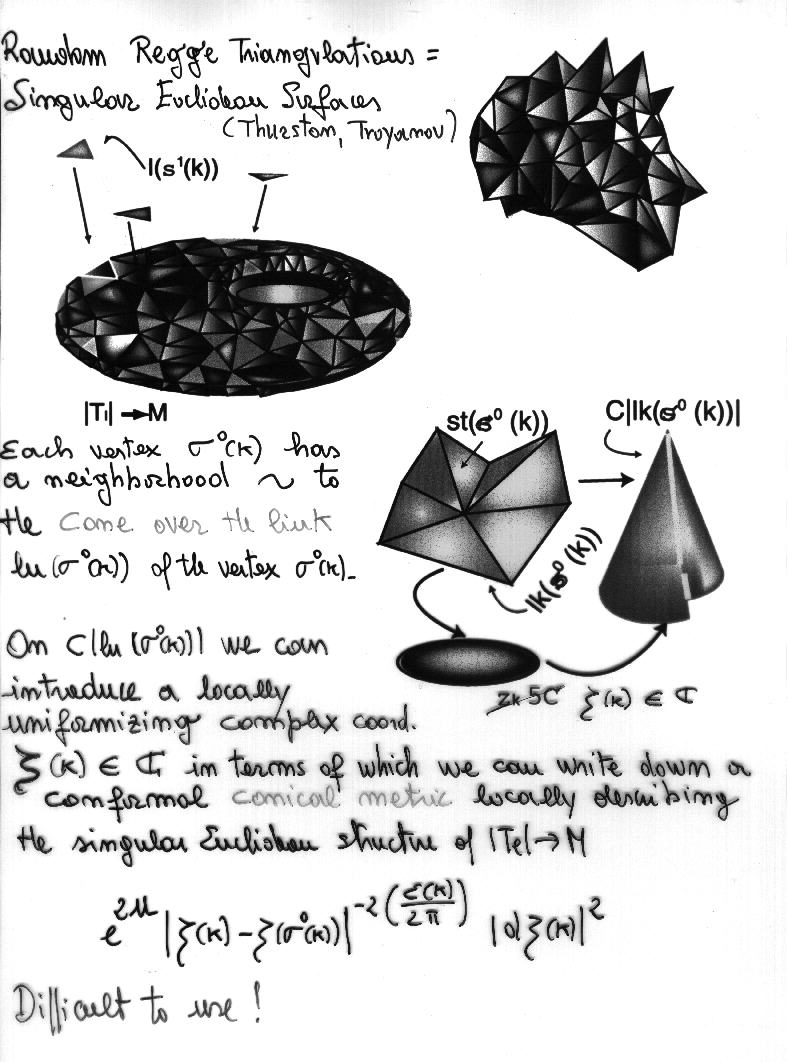 Random Regge Triangulations =
Singular Euclidean Surfaces
(Thurston, Troyanov)
l(s¹(k))
|Tₗ| → M
st(σ⁰(k))
C|lk(σ⁰(k))|
lk(σ⁰(k))
Each vertex σ⁰(k) has
a neighborhood ~ to
the Cone over the link
lk(σ⁰(k)) of the vertex σ⁰(k).
ζ(k) ∈ ℂ
On C|lk(σ⁰(k))| we can
introduce a locally
uniformizing complex coord.
ζ(k) ∈ ℂ in terms of which we can write down a
conformal conical metric locally describing
the singular Euclidean structure of |Tₗ| → M
e^{2u} |ζ(k) - ζ(σ⁰(k))|^{-2(ε(k)/2π)} |dζ(k)|²
Difficult to use!